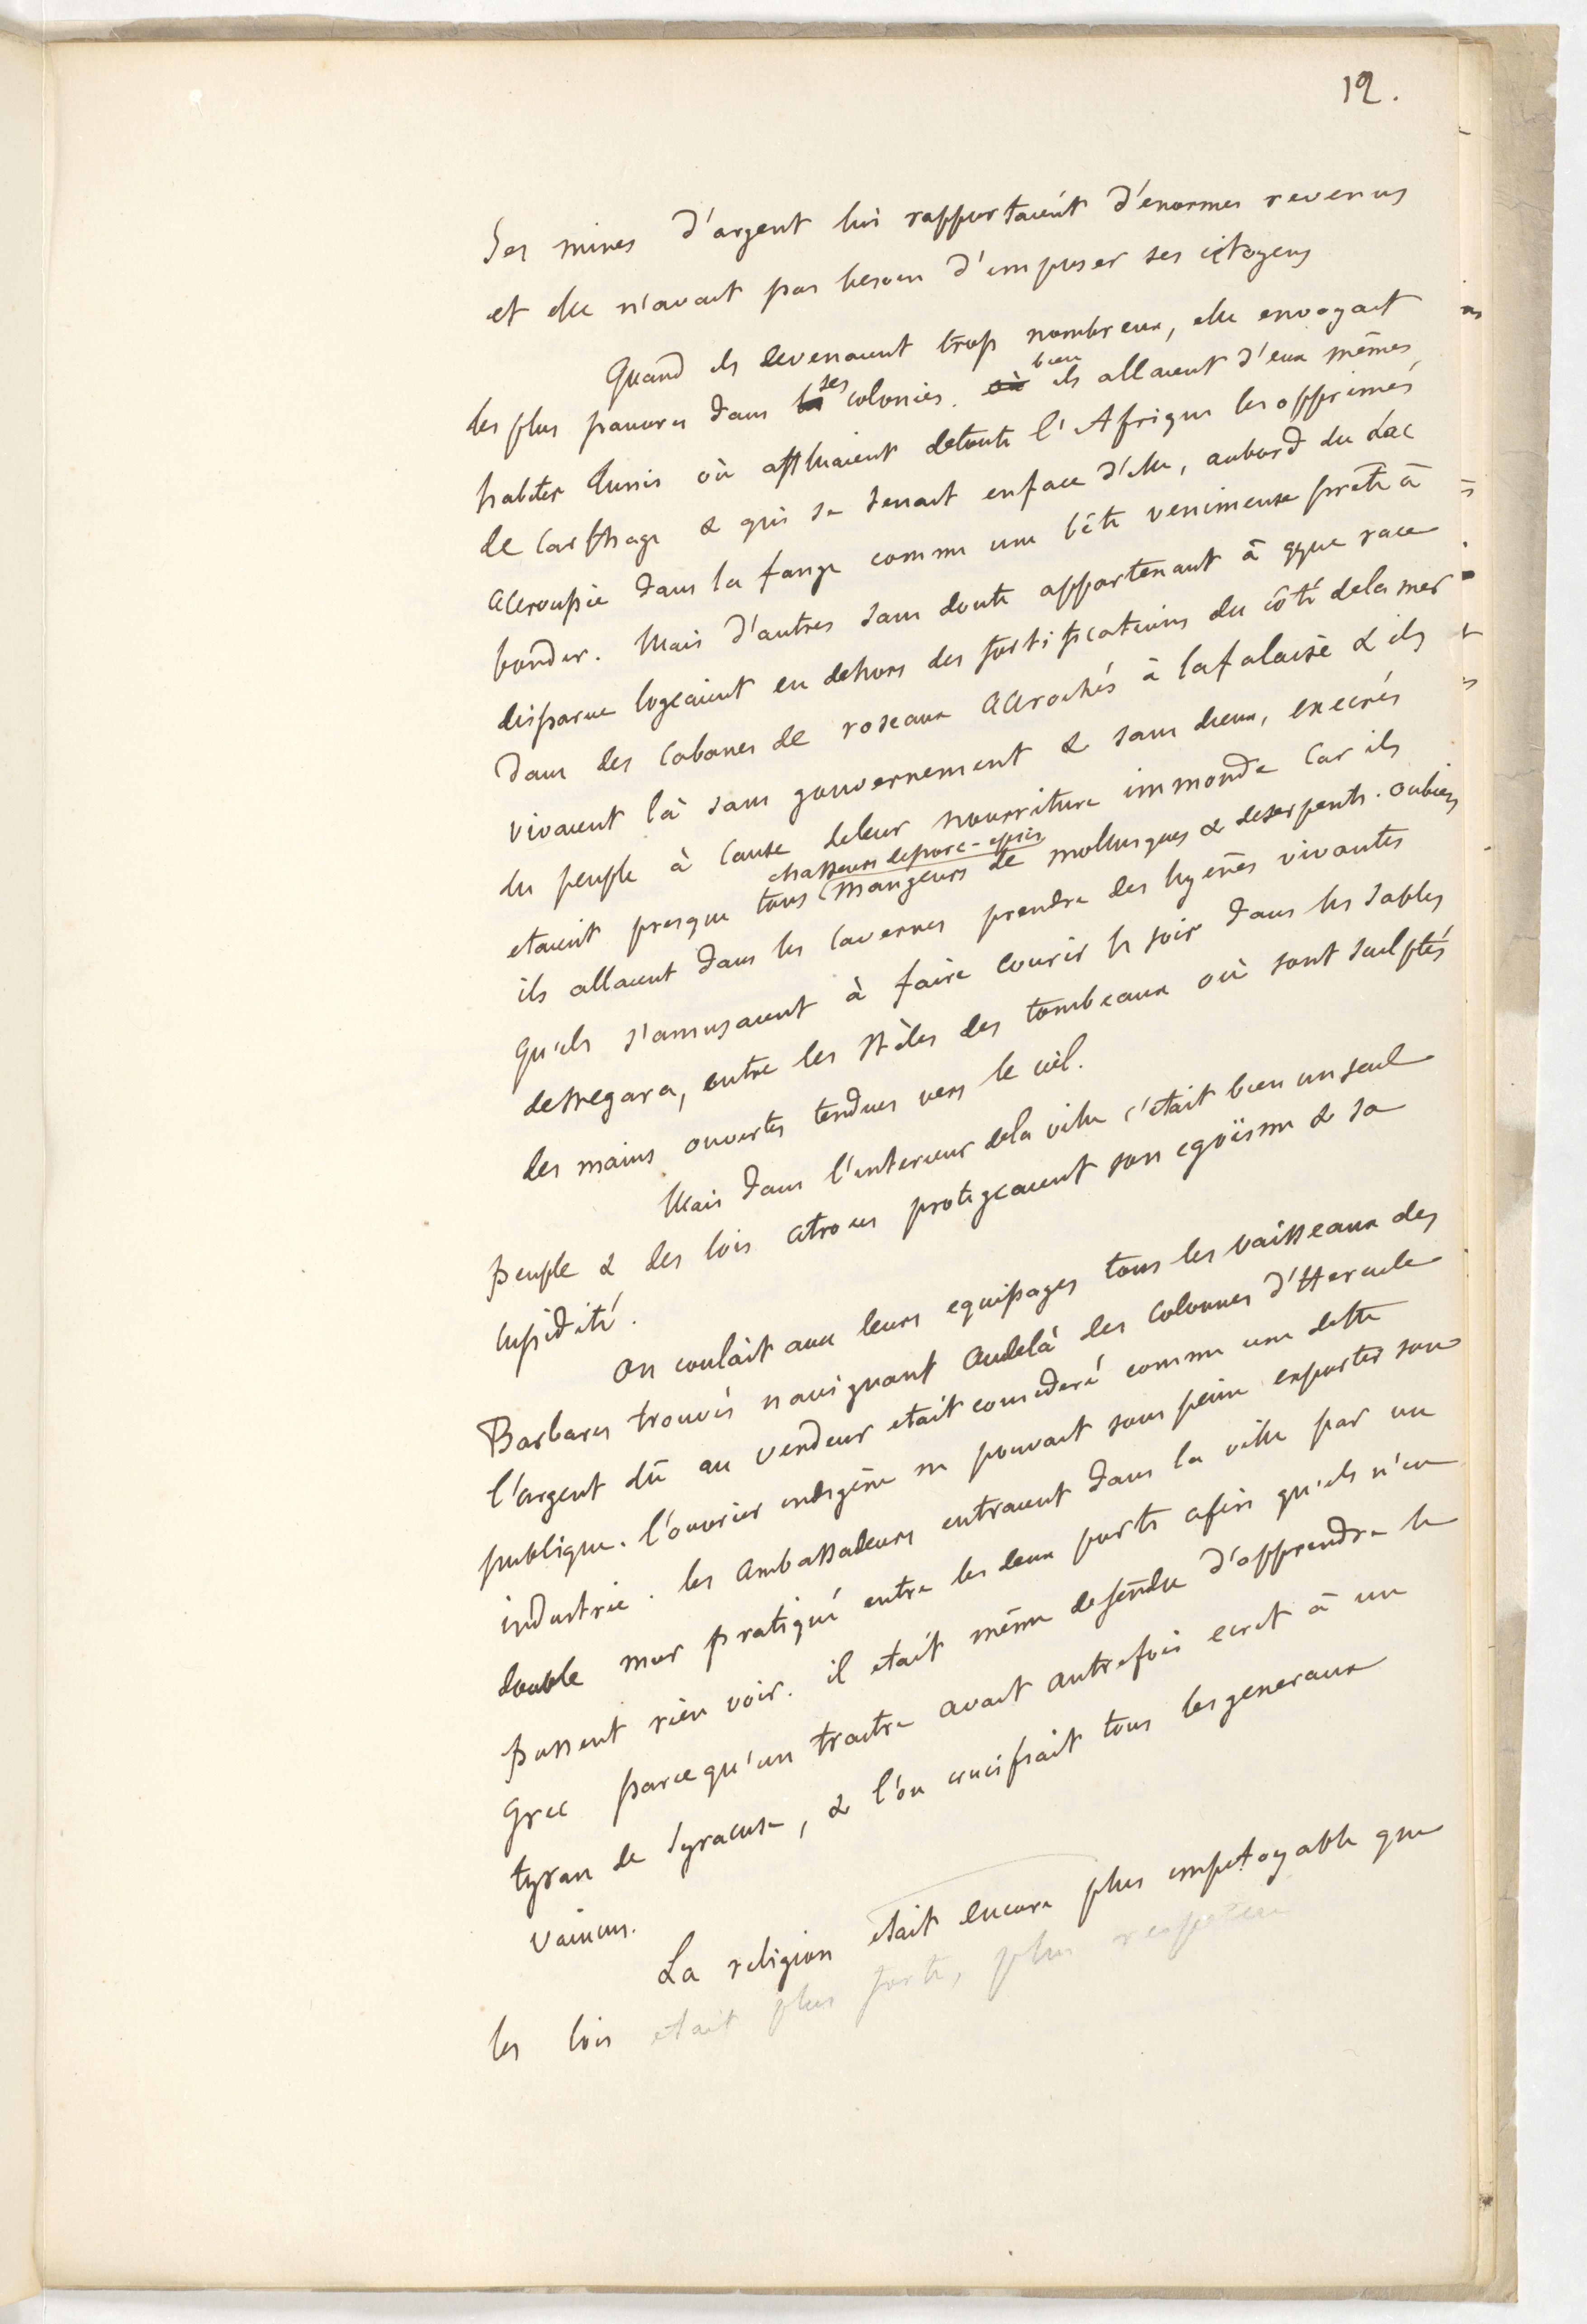 12.
Ses mines d'argent lui rapportaient d'énormes revenus
et elle n'avait pas besoin d'imposer ses citoyens
Quand ils devenaient trop nombreux, elle envoyait
les plus pauvres dans ses colonies. où bien ils allaient d'eux mêmes
habiter Tunis où affluaient detoute l'Afrique les opprimés
de Carthage & qui se tenait enface d'elle, aubord du Lac
accroupie dans la fange comme une bête venimeuse prête à
bondir. Mais d'autres sans doute appartenant à qque race
disparue logeaient en dehors des fortifications du côté dela mer
dans des cabanes de roseaux accrochés à lafalaise & ils
vivaient là sans gouvernement & sans dieux, execrés
du peuple à cause deleur nourriture immonde car ils
chasseurs deporc-epics
etaient presque tous (mangeurs de mollusques & deserpents. oubien
ils allaient dans les cavernes prendre des hyènes vivantes
qu'ils s'amusaient à faire courir le soir dans les sables
deMegara, entre les stèles des tombeaux où sont sculptés
des mains ouvertes tendues vers le ciel.
Mais dans l'interieur dela ville c'était bien un seul
peuple & des lois atroces protegeaient son egoïsme & sa
cupidité.
On coulait avec leurs equipages tous les vaisseaux des
Barbares trouvés naviguant audelà des Colonnes d'Hercule
l'argent dû au vendeur etait consideré comme une dette
publique. l'ouvrier indigène ne pouvait sans peine exporter son
industrie. les ambassadeurs entraient dans la ville par un
double mur pratiqué entre les deux ports afin qu'ils n'en
pussent rien voir. il etait même defendu d'apprendre le
Grec parcequ'un traitre avait autrefois ecrit à un
tyran de Syracuse, & l'on crucifiait tous lesgeneraux
vaincus.
La religion etait encore plus impitoyable que
les lois etait plus forte, plus